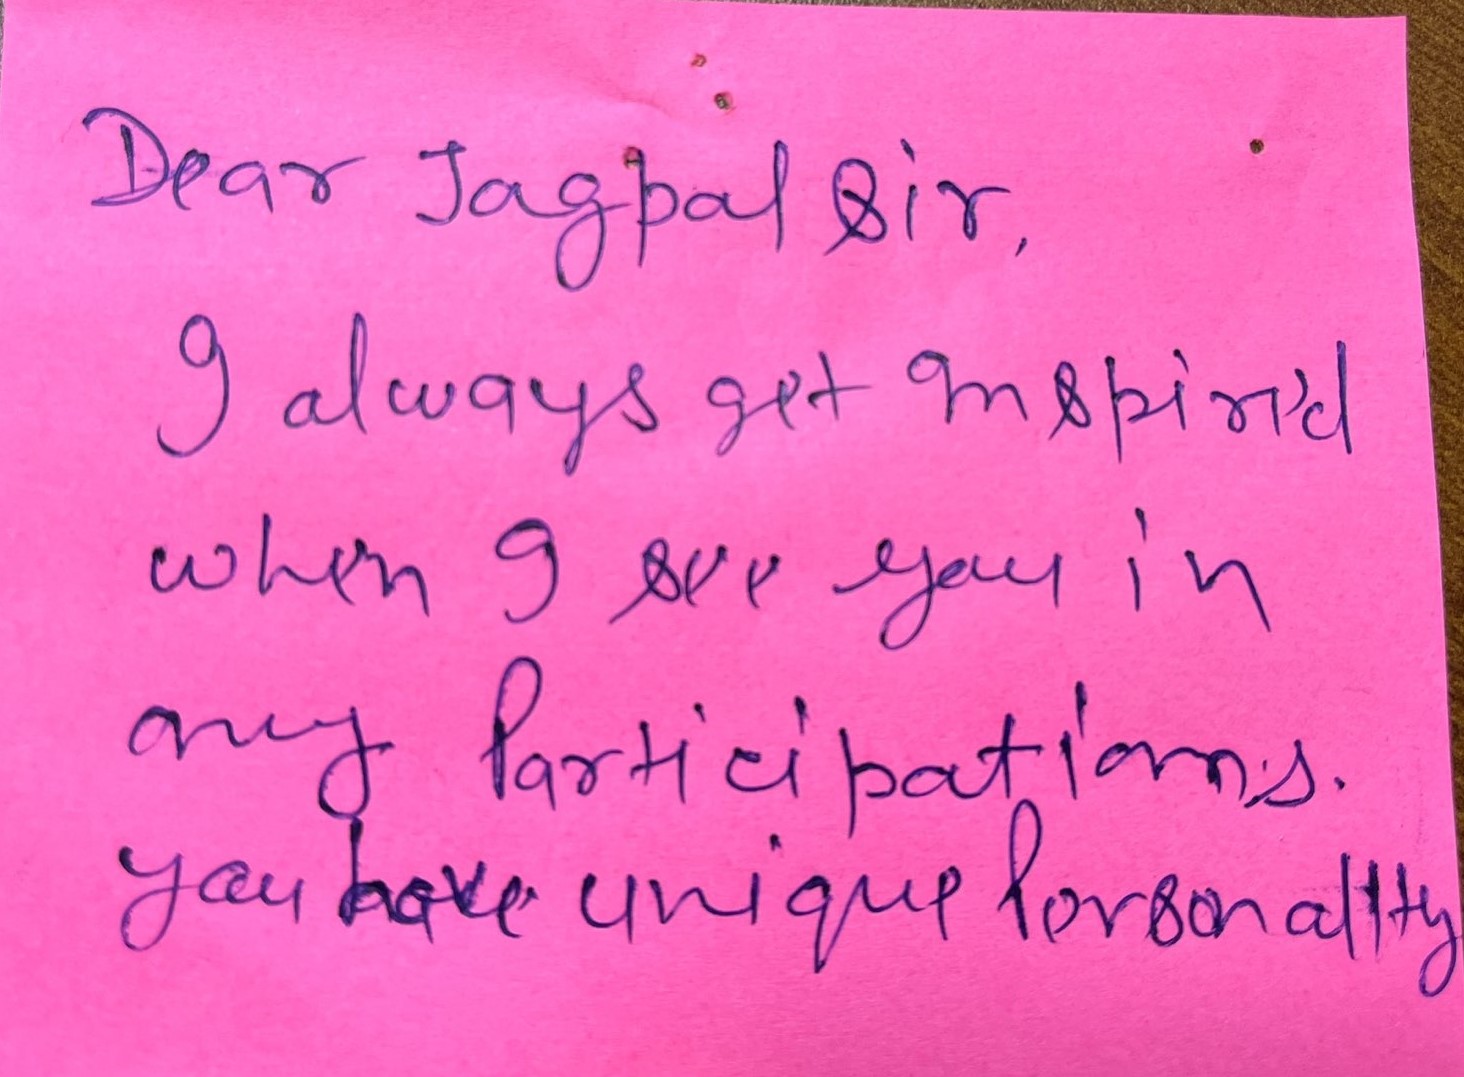 Dear Jagpal Sir,
I always get Inspired
when I see you in
any Participations.
you have unique Personality